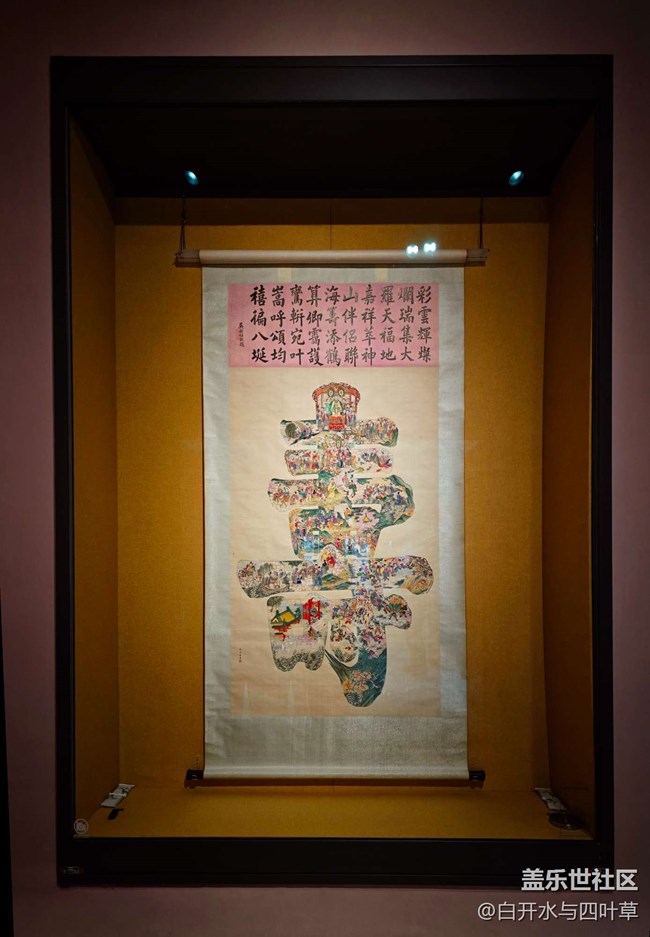 彩雲輝燦
爛瑞集大
羅天福地
嘉祥萃神
山伴侶聯
海籌添鶴
算卿靄護
鸞軿宛叶
嵩呼頌均
禧徧八埏
壽
盖乐世社区
@白开水与四叶草